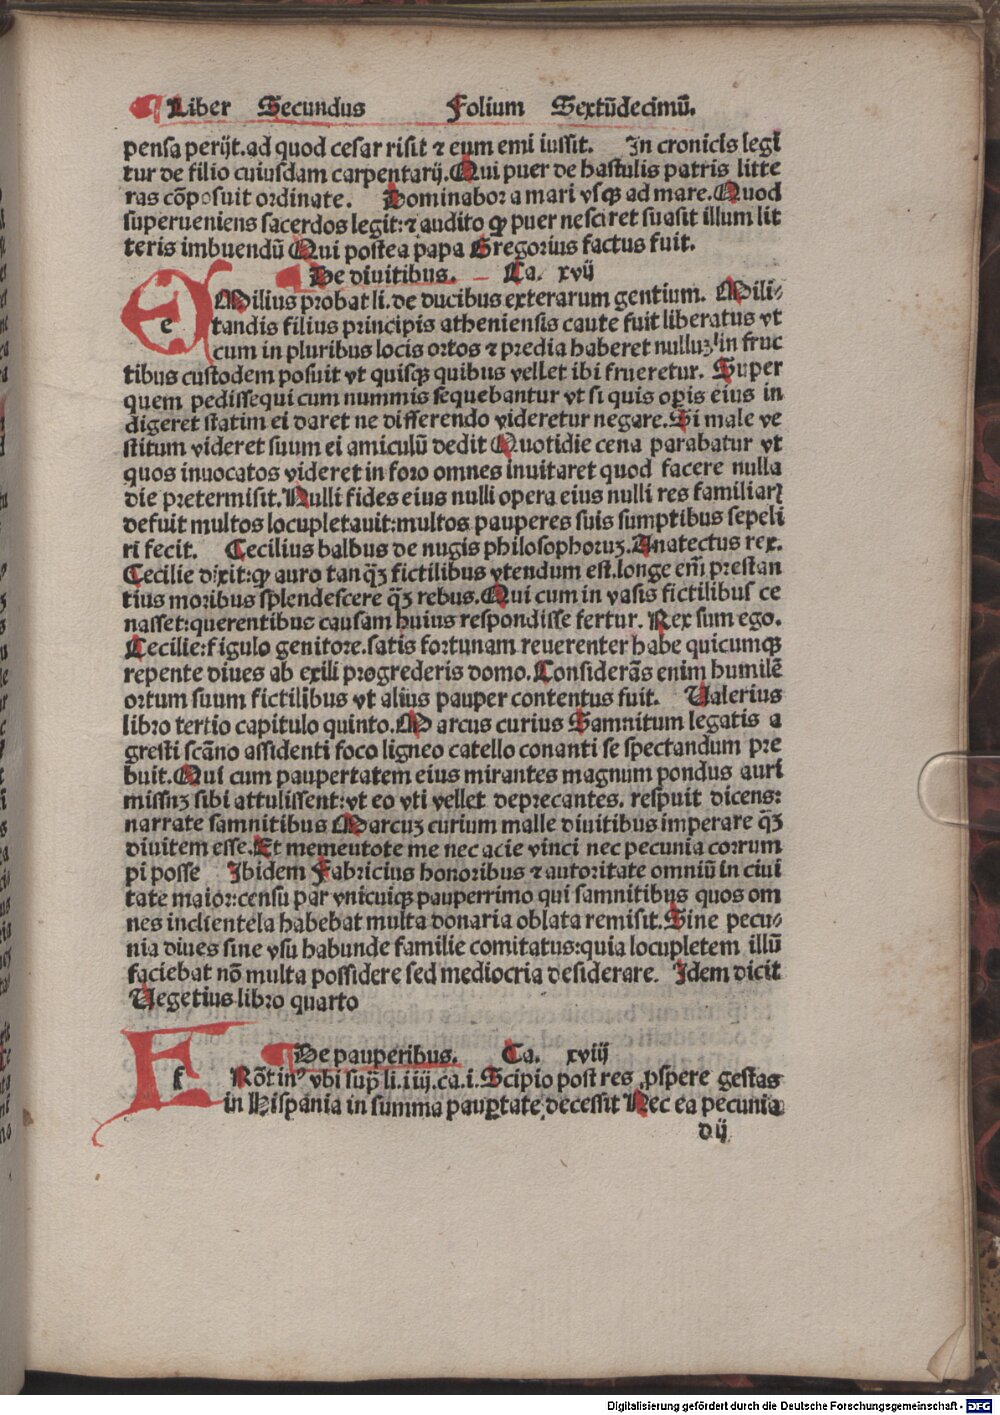 ¶ Liber Secundus Folium Sextũdecimũ.
pensa perijt.ad quod cesar risit ⁊ eum emi iussit. In cronicis legi
tur de filio cuiusdam carpentarij.Qui puer de hastulis patris litte
ras cõposuit ordinate. Dominabor a mari vsqꝫ ad mare.Quod
superueniens sacerdos legit:⁊ audito ꝙ puer nesciret suasit illum lit
teris imbuendũ Qui postea papa Gregorius factus fuit.
¶ De diuitibus. Ca. xvij
e Milius probat li.de ducibus exterarum gentium. Mili⸗
tandis filius principis atheniensis caute fuit liberatus vt
cum in pluribus locis ortos ⁊ predia haberet nulluꝫ in fruc
tibus custodem posuit vt quisqꝫ quibus vellet ibi frueretur. Super
quem pedissequi cum nummis sequebantur vt si quis oꝑis eius in
digeret statim ei daret ne differendo videretur negare.Si male ve
stitum videret suum ei amiculũ dedit Quotidie cena parabatur vt
quos inuocatos videret in foro omnes inuitaret quod facere nulla
die pretermisit.Nulli fides eius nulli opera eius nulli res familiarꝭ
defuit multos locupletauit:multos pauperes suis sumptibus sepeli
ri fecit. Cecilius balbus de nugis philosophoruꝫ.Anatectus rex.
Cecilie dixit:ꝙ auro tanq̃ꝫ fictilibus vtendum est.longe em̃ prestan
tius moribus splendescere q̃ꝫ rebus.Qui cum in vasis fictilibus ce
nasset:querentibus causam huius respondisse fertur. Rex sum ego.
Cecilie:figulo genitore.satis fortunam reuerenter habe quicumqꝫ
repente diues ab exili progrederis domo.Considerãs enim humilẽ
ortum suum fictilibus vt alius pauper contentus fuit. Ualerius
libro tertio capitulo quinto.Marcus curius Samnitum legatis a
gresti scãno assidenti foco ligneo catello conanti se spectandum pre
buit.Qui cum paupertatem eius mirantes magnum pondus auri
missuꝫ sibi attulissent:vt eo vti vellet deprecantes. respuit dicens:
narrate samnitibus Marcuꝫ curium malle diuitibus imperare q̃ꝫ
diuitem esse.Et memeutote me nec acie vinci nec pecunia corrum
pi posse Ibidem Fabricius honoribus ⁊ autoritate omniũ in ciui
tate maior:censu par vnicuiqꝫ pauperrimo qui samnitibus quos om
nes inclientela habebat multa donaria oblata remisit.Sine pecu⸗
nia diues sine vsu habunde familie comitatus:quia locupletem illũ
faciebat nõ multa possidere sed mediocria desiderare. Idem dicit
Uegetius libro quarto
¶ De pauperibus. Ca. xviij
f Rõtinꝰ vbi sup̃ li.iiij.ca.i.Scipio post res ꝓspere gestas
in Hispania in summa pauꝑtate decessit Nec ea pecunia
dij
Digitalisierung gefördert durch die Deutsche Forschungsgemeinschaft - DFG